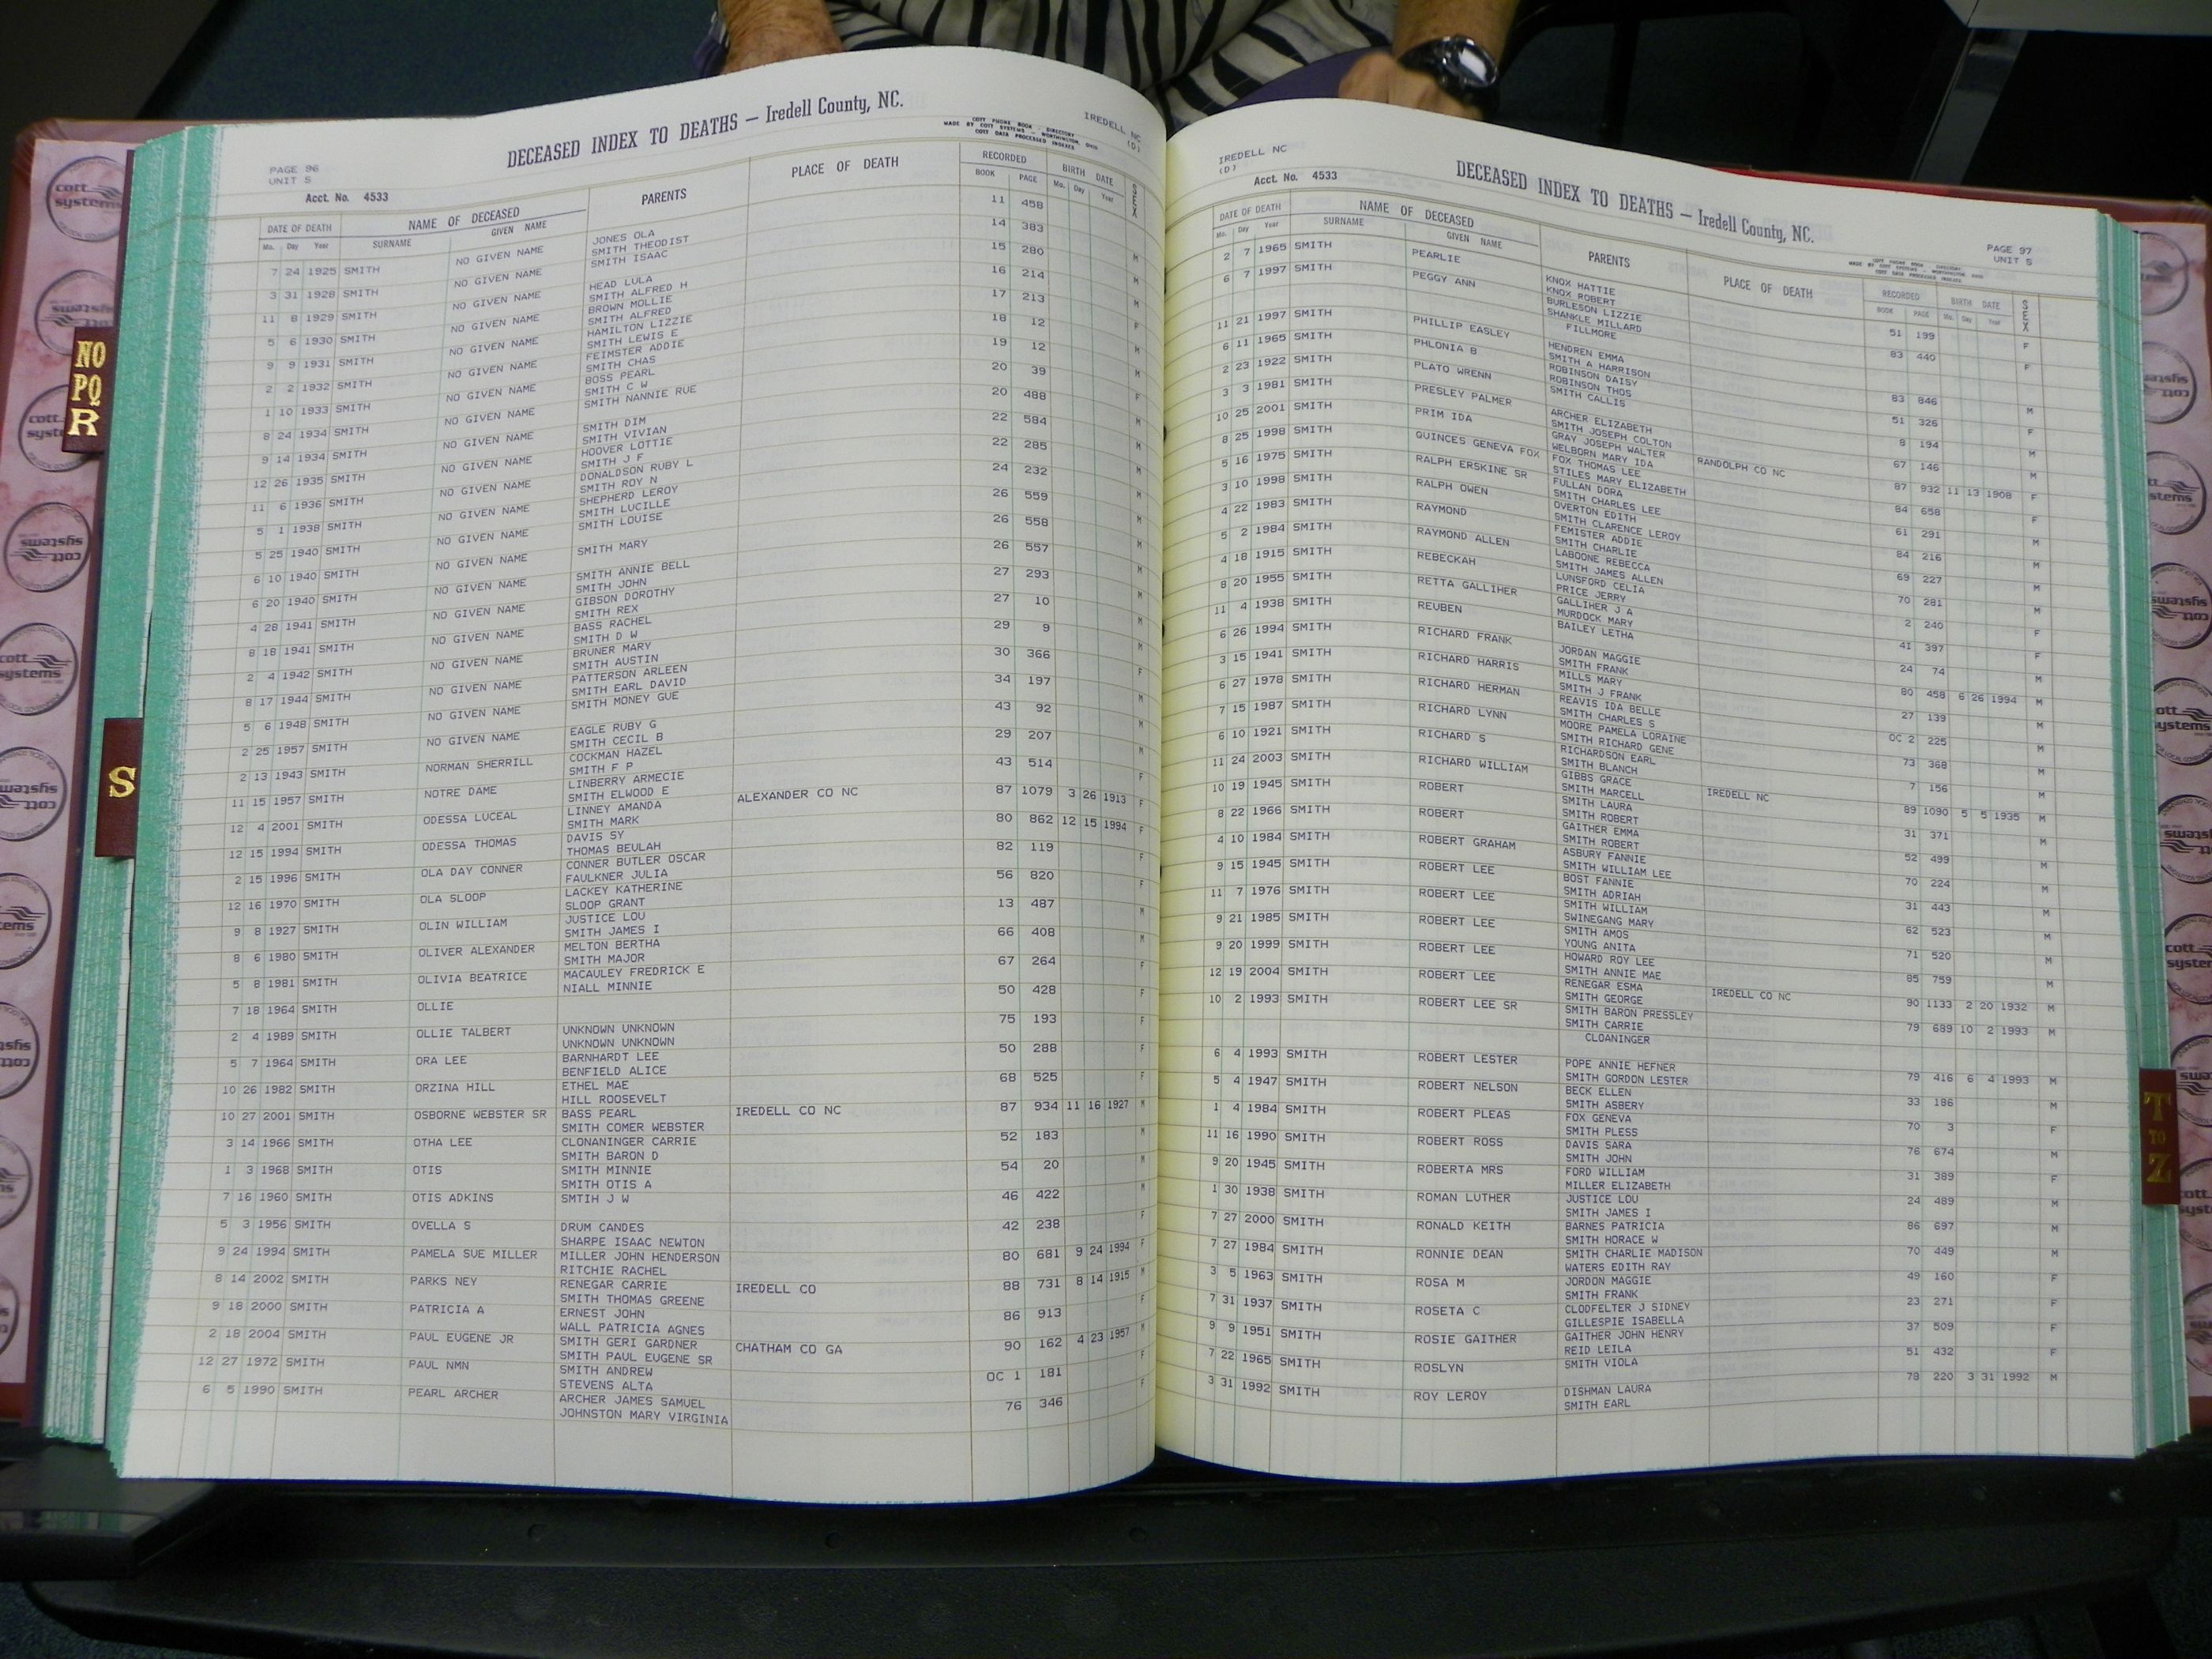 DECEASED INDEX TO DEATHS — Iredell County, NC.
COTT PHONE BOOK - DIRECTORY
MADE BY COTT SYSTEMS - WORTHINGTON, OHIO
COTT DATA PROCESSED INDEXES
IREDELL NC
(D)
PAGE 96
UNIT S
Acct. No. 4533
DATE OF DEATH NAME OF DECEASED PARENTS PLACE OF DEATH RECORDED BIRTH DATE SEX
Mo. Day Year SURNAME GIVEN NAME BOOK PAGE Mo. Day Year
7 24 1925 SMITH NO GIVEN NAME JONES OLA 11 458
SMITH THEODIST
3 31 1928 SMITH NO GIVEN NAME SMITH ISAAC 14 383 M
11 8 1929 SMITH NO GIVEN NAME HEAD LULA 15 280 M
SMITH ALFRED H
5 6 1930 SMITH NO GIVEN NAME BROWN MOLLIE 16 214 M
SMITH ALFRED
9 9 1931 SMITH NO GIVEN NAME HAMILTON LIZZIE 17 213 F
SMITH LEWIS E
2 2 1932 SMITH NO GIVEN NAME FEIMSTER ADDIE 18 12 M
SMITH CHAS
1 10 1933 SMITH NO GIVEN NAME BOSS PEARL 19 12 M
SMITH C W
8 24 1934 SMITH NO GIVEN NAME SMITH NANNIE RUE 20 39 F
9 14 1934 SMITH NO GIVEN NAME SMITH DIM 20 488 M
SMITH VIVIAN
12 26 1935 SMITH NO GIVEN NAME HOOVER LOTTIE 22 584 M
SMITH J F
11 6 1936 SMITH NO GIVEN NAME DONALDSON RUBY L 22 285 M
SMITH ROY N
5 1 1938 SMITH NO GIVEN NAME SHEPHERD LEROY 24 232 M
SMITH LUCILLE
5 25 1940 SMITH NO GIVEN NAME SMITH LOUISE 26 559 M
6 10 1940 SMITH NO GIVEN NAME SMITH MARY 26 558 M
6 20 1940 SMITH NO GIVEN NAME SMITH ANNIE BELL 26 557 M
SMITH JOHN
4 28 1941 SMITH NO GIVEN NAME GIBSON DOROTHY 27 293 M
SMITH REX
8 18 1941 SMITH NO GIVEN NAME BASS RACHEL 27 10 M
SMITH D W
2 4 1942 SMITH NO GIVEN NAME BRUNER MARY 29 9 M
SMITH AUSTIN
8 17 1944 SMITH NO GIVEN NAME PATTERSON ARLEEN 30 366 F
SMITH EARL DAVID
5 6 1948 SMITH NO GIVEN NAME SMITH MONEY GUE 34 197 M
2 25 1957 SMITH NO GIVEN NAME EAGLE RUBY G 43 92 M
SMITH CECIL B
2 13 1943 SMITH NORMAN SHERRILL COCKMAN HAZEL 29 207 M
SMITH F P
11 15 1957 SMITH NOTRE DAME LINBERRY ARMECIE 43 514 F
SMITH ELWOOD E
12 4 2001 SMITH ODESSA LUCEAL LINNEY AMANDA ALEXANDER CO NC 87 1079 3 26 1913 F
SMITH MARK
12 15 1994 SMITH ODESSA THOMAS DAVIS SY 80 862 12 15 1994 F
THOMAS BEULAH
2 15 1996 SMITH OLA DAY CONNER CONNER BUTLER OSCAR 82 119 F
FAULKNER JULIA
12 16 1970 SMITH OLA SLOOP LACKEY KATHERINE 56 820 F
SLOOP GRANT
9 8 1927 SMITH OLIN WILLIAM JUSTICE LOU 13 487 M
SMITH JAMES I
8 6 1980 SMITH OLIVER ALEXANDER MELTON BERTHA 66 408 M
SMITH MAJOR
5 8 1981 SMITH OLIVIA BEATRICE MACAULEY FREDRICK E 67 264 F
NIALL MINNIE
7 18 1964 SMITH OLLIE 50 428 F
2 4 1989 SMITH OLLIE TALBERT UNKNOWN UNKNOWN 75 193 F
UNKNOWN UNKNOWN
5 7 1964 SMITH ORA LEE BARNHARDT LEE 50 288 F
BENFIELD ALICE
10 26 1982 SMITH ORZINA HILL ETHEL MAE 68 525 F
HILL ROOSEVELT
10 27 2001 SMITH OSBORNE WEBSTER SR BASS PEARL IREDELL CO NC 87 934 11 16 1927 M
SMITH COMER WEBSTER
3 14 1966 SMITH OTHA LEE CLONANINGER CARRIE 52 183 M
SMITH BARON D
1 3 1968 SMITH OTIS SMITH MINNIE 54 20 M
SMITH OTIS A
7 16 1960 SMITH OTIS ADKINS SMTIH J W 46 422 M
5 3 1956 SMITH OVELLA S DRUM CANDES 42 238 F
SHARPE ISAAC NEWTON
9 24 1994 SMITH PAMELA SUE MILLER MILLER JOHN HENDERSON 80 681 9 24 1994 F
RITCHIE RACHEL
8 14 2002 SMITH PARKS NEY RENEGAR CARRIE IREDELL CO 88 731 8 14 1915 M
SMITH THOMAS GREENE
9 18 2000 SMITH PATRICIA A ERNEST JOHN 86 913 F
WALL PATRICIA AGNES
2 18 2004 SMITH PAUL EUGENE JR SMITH GERI GARDNER CHATHAM CO GA 90 162 4 23 1957 M
SMITH PAUL EUGENE SR
12 27 1972 SMITH PAUL NMN SMITH ANDREW OC 1 181 F
STEVENS ALTA
6 5 1990 SMITH PEARL ARCHER ARCHER JAMES SAMUEL 76 346 F
JOHNSTON MARY VIRGINIA
IREDELL NC
(D)
Acct. No. 4533
DECEASED INDEX TO DEATHS — Iredell County, NC.
PAGE 97
UNIT S
COTT PHONE BOOK - DIRECTORY
MADE BY COTT SYSTEMS - WORTHINGTON, OHIO
COTT DATA PROCESSED INDEXES
DATE OF DEATH NAME OF DECEASED PARENTS PLACE OF DEATH RECORDED BIRTH DATE SEX
Mo. Day Year SURNAME GIVEN NAME BOOK PAGE Mo. Day Year
2 7 1965 SMITH PEARLIE KNOX HATTIE 51 199 F
KNOX ROBERT
6 7 1997 SMITH PEGGY ANN BURLESON LIZZIE 83 440 F
SHANKLE MILLARD
FILLMORE
11 21 1997 SMITH PHILLIP EASLEY HENDREN EMMA 83 846 M
SMITH A HARRISON
6 11 1965 SMITH PHLONIA B ROBINSON DAISY 51 326 F
ROBINSON THOS
2 23 1922 SMITH PLATO WRENN SMITH CALLIS 8 194 M
3 3 1981 SMITH PRESLEY PALMER ARCHER ELIZABETH 67 146 M
SMITH JOSEPH COLTON
10 25 2001 SMITH PRIM IDA GRAY JOSEPH WALTER RANDOLPH CO NC 87 932 11 13 1908 F
WELBORN MARY IDA
8 25 1998 SMITH QUINCES GENEVA FOX FOX THOMAS LEE 84 658 F
STILES MARY ELIZABETH
5 16 1975 SMITH RALPH ERSKINE SR FULLAN DORA 61 291 M
SMITH CHARLES LEE
3 10 1998 SMITH RALPH OWEN OVERTON EDITH 84 216 M
SMITH CLARENCE LEROY
4 22 1983 SMITH RAYMOND FEMISTER ADDIE 69 227 M
SMITH CHARLIE
5 2 1984 SMITH RAYMOND ALLEN LABOONE REBECCA 70 281 M
SMITH JAMES ALLEN
4 18 1915 SMITH REBECKAH LUNSFORD CELIA 2 240 F
PRICE JERRY
8 20 1955 SMITH RETTA GALLIHER GALLIHER J A 41 397 F
MURDOCK MARY
11 4 1938 SMITH REUBEN BAILEY LETHA 24 74 M
6 26 1994 SMITH RICHARD FRANK JORDAN MAGGIE 80 458 6 26 1994 M
SMITH FRANK
3 15 1941 SMITH RICHARD HARRIS MILLS MARY 27 139 M
SMITH J FRANK
6 27 1978 SMITH RICHARD HERMAN REAVIS IDA BELLE OC 2 225 M
SMITH CHARLES S
7 15 1987 SMITH RICHARD LYNN MOORE PAMELA LORAINE 73 368 M
SMITH RICHARD GENE
6 10 1921 SMITH RICHARD S RICHARDSON EARL 7 156 M
SMITH BLANCH
11 24 2003 SMITH RICHARD WILLIAM GIBBS GRACE IREDELL NC 89 1090 5 5 1935 M
SMITH MARCELL
10 19 1945 SMITH ROBERT SMITH LAURA 31 371 M
SMITH ROBERT
8 22 1966 SMITH ROBERT GAITHER EMMA 52 499 M
SMITH ROBERT
4 10 1984 SMITH ROBERT GRAHAM ASBURY FANNIE 70 224 M
SMITH WILLIAM LEE
9 15 1945 SMITH ROBERT LEE BOST FANNIE 31 443 M
SMITH ADRIAH
11 7 1976 SMITH ROBERT LEE SMITH WILLIAM 62 523 M
SWINEGANG MARY
9 21 1985 SMITH ROBERT LEE SMITH AMOS 71 520 M
YOUNG ANITA
9 20 1999 SMITH ROBERT LEE HOWARD ROY LEE 85 759 M
SMITH ANNIE MAE
12 19 2004 SMITH ROBERT LEE RENEGAR ESMA IREDELL CO NC 90 1133 2 20 1932 M
SMITH GEORGE
10 2 1993 SMITH ROBERT LEE SR SMITH BARON PRESSLEY 79 689 10 2 1993 M
SMITH CARRIE
CLOANINGER
6 4 1993 SMITH ROBERT LESTER POPE ANNIE HEFNER 79 416 6 4 1993 M
SMITH GORDON LESTER
5 4 1947 SMITH ROBERT NELSON BECK ELLEN 33 186 M
SMITH ASBERY
1 4 1984 SMITH ROBERT PLEAS FOX GENEVA 70 3 F
SMITH PLESS
11 16 1990 SMITH ROBERT ROSS DAVIS SARA 76 674 M
SMITH JOHN
9 20 1945 SMITH ROBERTA MRS FORD WILLIAM 31 389 F
MILLER ELIZABETH
1 30 1938 SMITH ROMAN LUTHER JUSTICE LOU 24 489 M
SMITH JAMES I
7 27 2000 SMITH RONALD KEITH BARNES PATRICIA 86 697 M
SMITH HORACE W
7 27 1984 SMITH RONNIE DEAN SMITH CHARLIE MADISON 70 449 M
WATERS EDITH RAY
3 5 1963 SMITH ROSA M JORDON MAGGIE 49 160 F
SMITH FRANK
7 31 1937 SMITH ROSETA C CLODFELTER J SIDNEY 23 271 F
GILLESPIE ISABELLA
9 9 1951 SMITH ROSIE GAITHER GAITHER JOHN HENRY 37 509 F
REID LEILA
7 22 1965 SMITH ROSLYN SMITH VIOLA 51 432 F
3 31 1992 SMITH ROY LEROY DISHMAN LAURA 78 220 3 31 1992 M
SMITH EARL
NO
PQ
R
S
T
TO
Z
cott
systems